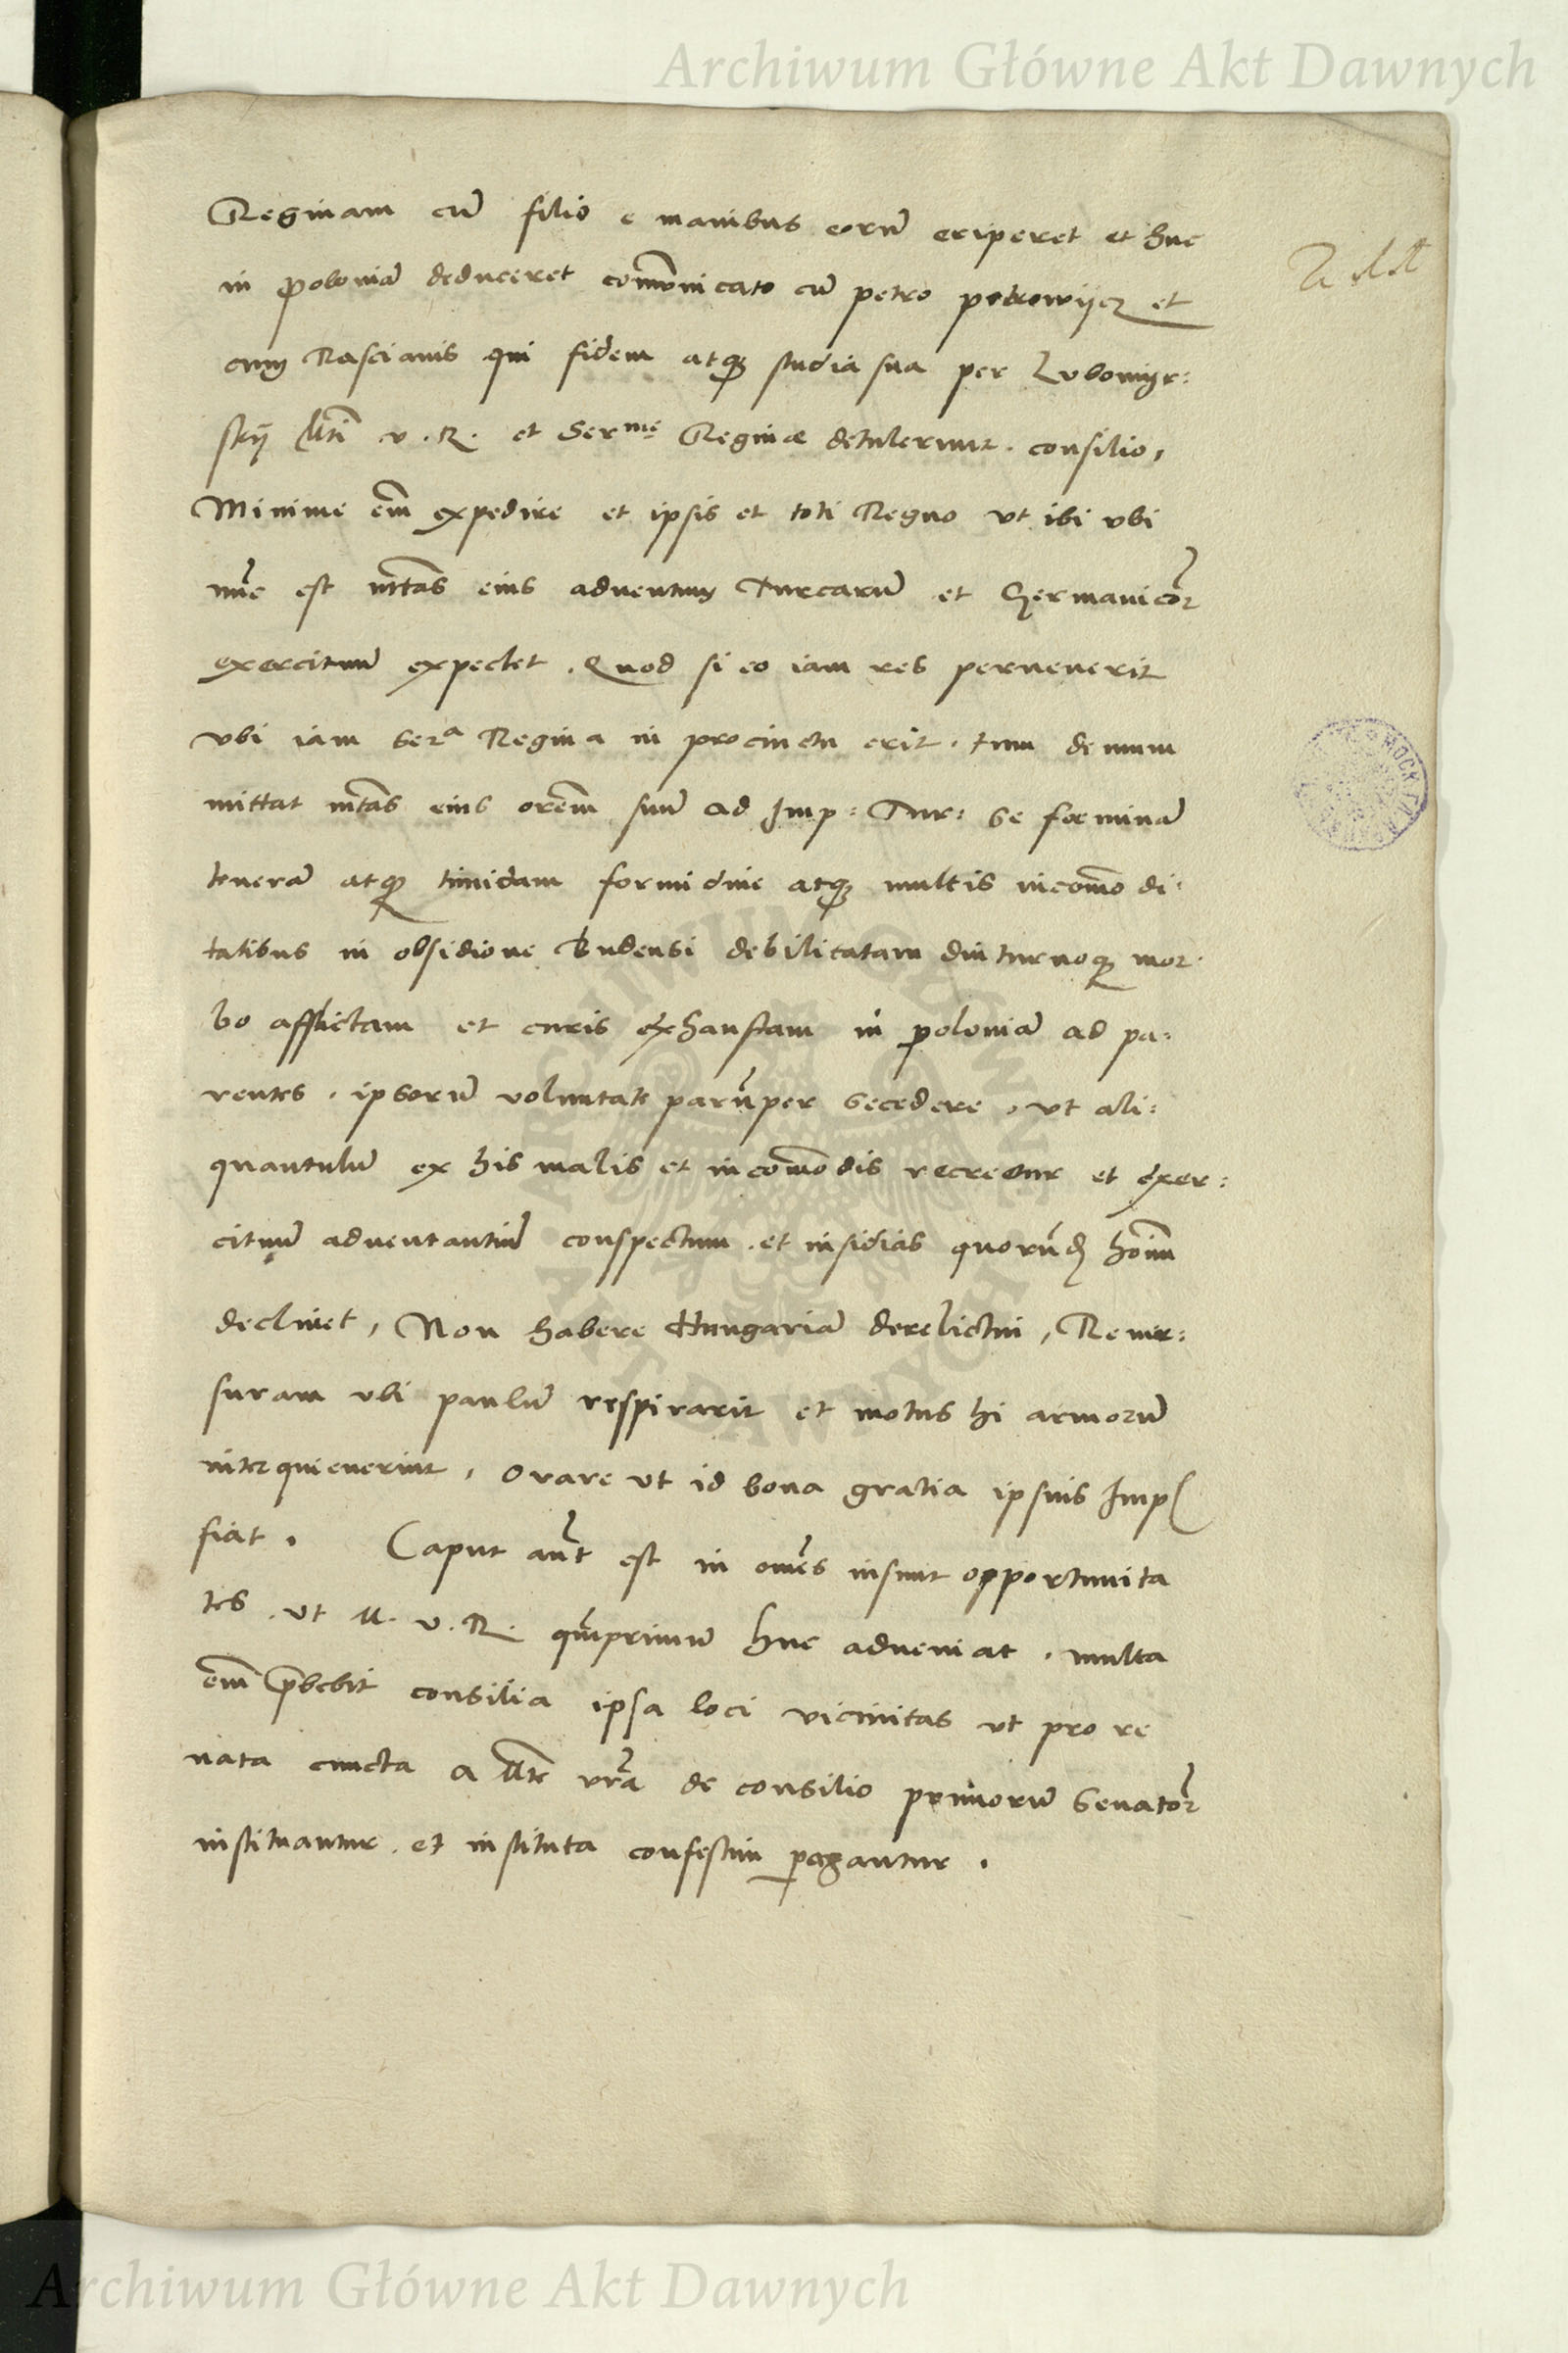 Archiwum Główne Akt Dawnych
Reginam cũ filio e manibus eorũ eriperet et huc
in Poloniã deduceret com̃unicato cũ petro petrowijcz et
cum Rascianis qui fidem atq3 studia sua per Lubomijr:
skij Mti v. R. et Ser^me Reginæ detulerunt. consilio,
Minime em̃ expedire et ipsis et toti Regno vt ibi vbi
nũc est mtas eius aduentum Turcarũ et Germanicor̃
exercituũ expectet. Quod si eo iam res peruenerit
vbi iam Ser^a Regina in procinctu erit. tum demum
mittat mtas eius orem̃ suũ ad Imp: Tur: se foeminã
tenerã atq3 timidam formidine atq3 multis incom̃odi:
tatibus in obsidione Budensi debilitatam diuturnoq3 mor:
bo afflictam et curis exhaustam in poloniã ad pa:
rentes. ipsorũ voluntate parũper secedere, vt ali:
quantulũ ex his malis et incom̃odis recreetur et exer:
cituũ aduentantiũ conspectum. et insidias quorũd̃ hoim̃
declinet, Non habere Hungariã derelictui, Reuer:
suram vbi paulũ respirarit et motus hi armorũ
interquieuerint, orare vt id bona gratia ipsius Imp
fiat. Caput aũt est in om̃es insunt opportunita
tes. vt M. v. R. qm̃primũ huc adueniat. multa
em̃ p̃bebit consilia ipsa loci vicinitas vt pro re
nata cuncta a Mte vr̃a de consilio primorũ Senator̃
instituantur. et instituta confestim pagantur.
ARCHIWUM GŁÓWNE AKT DAWNYCH
Archiwum Główne Akt Dawnych